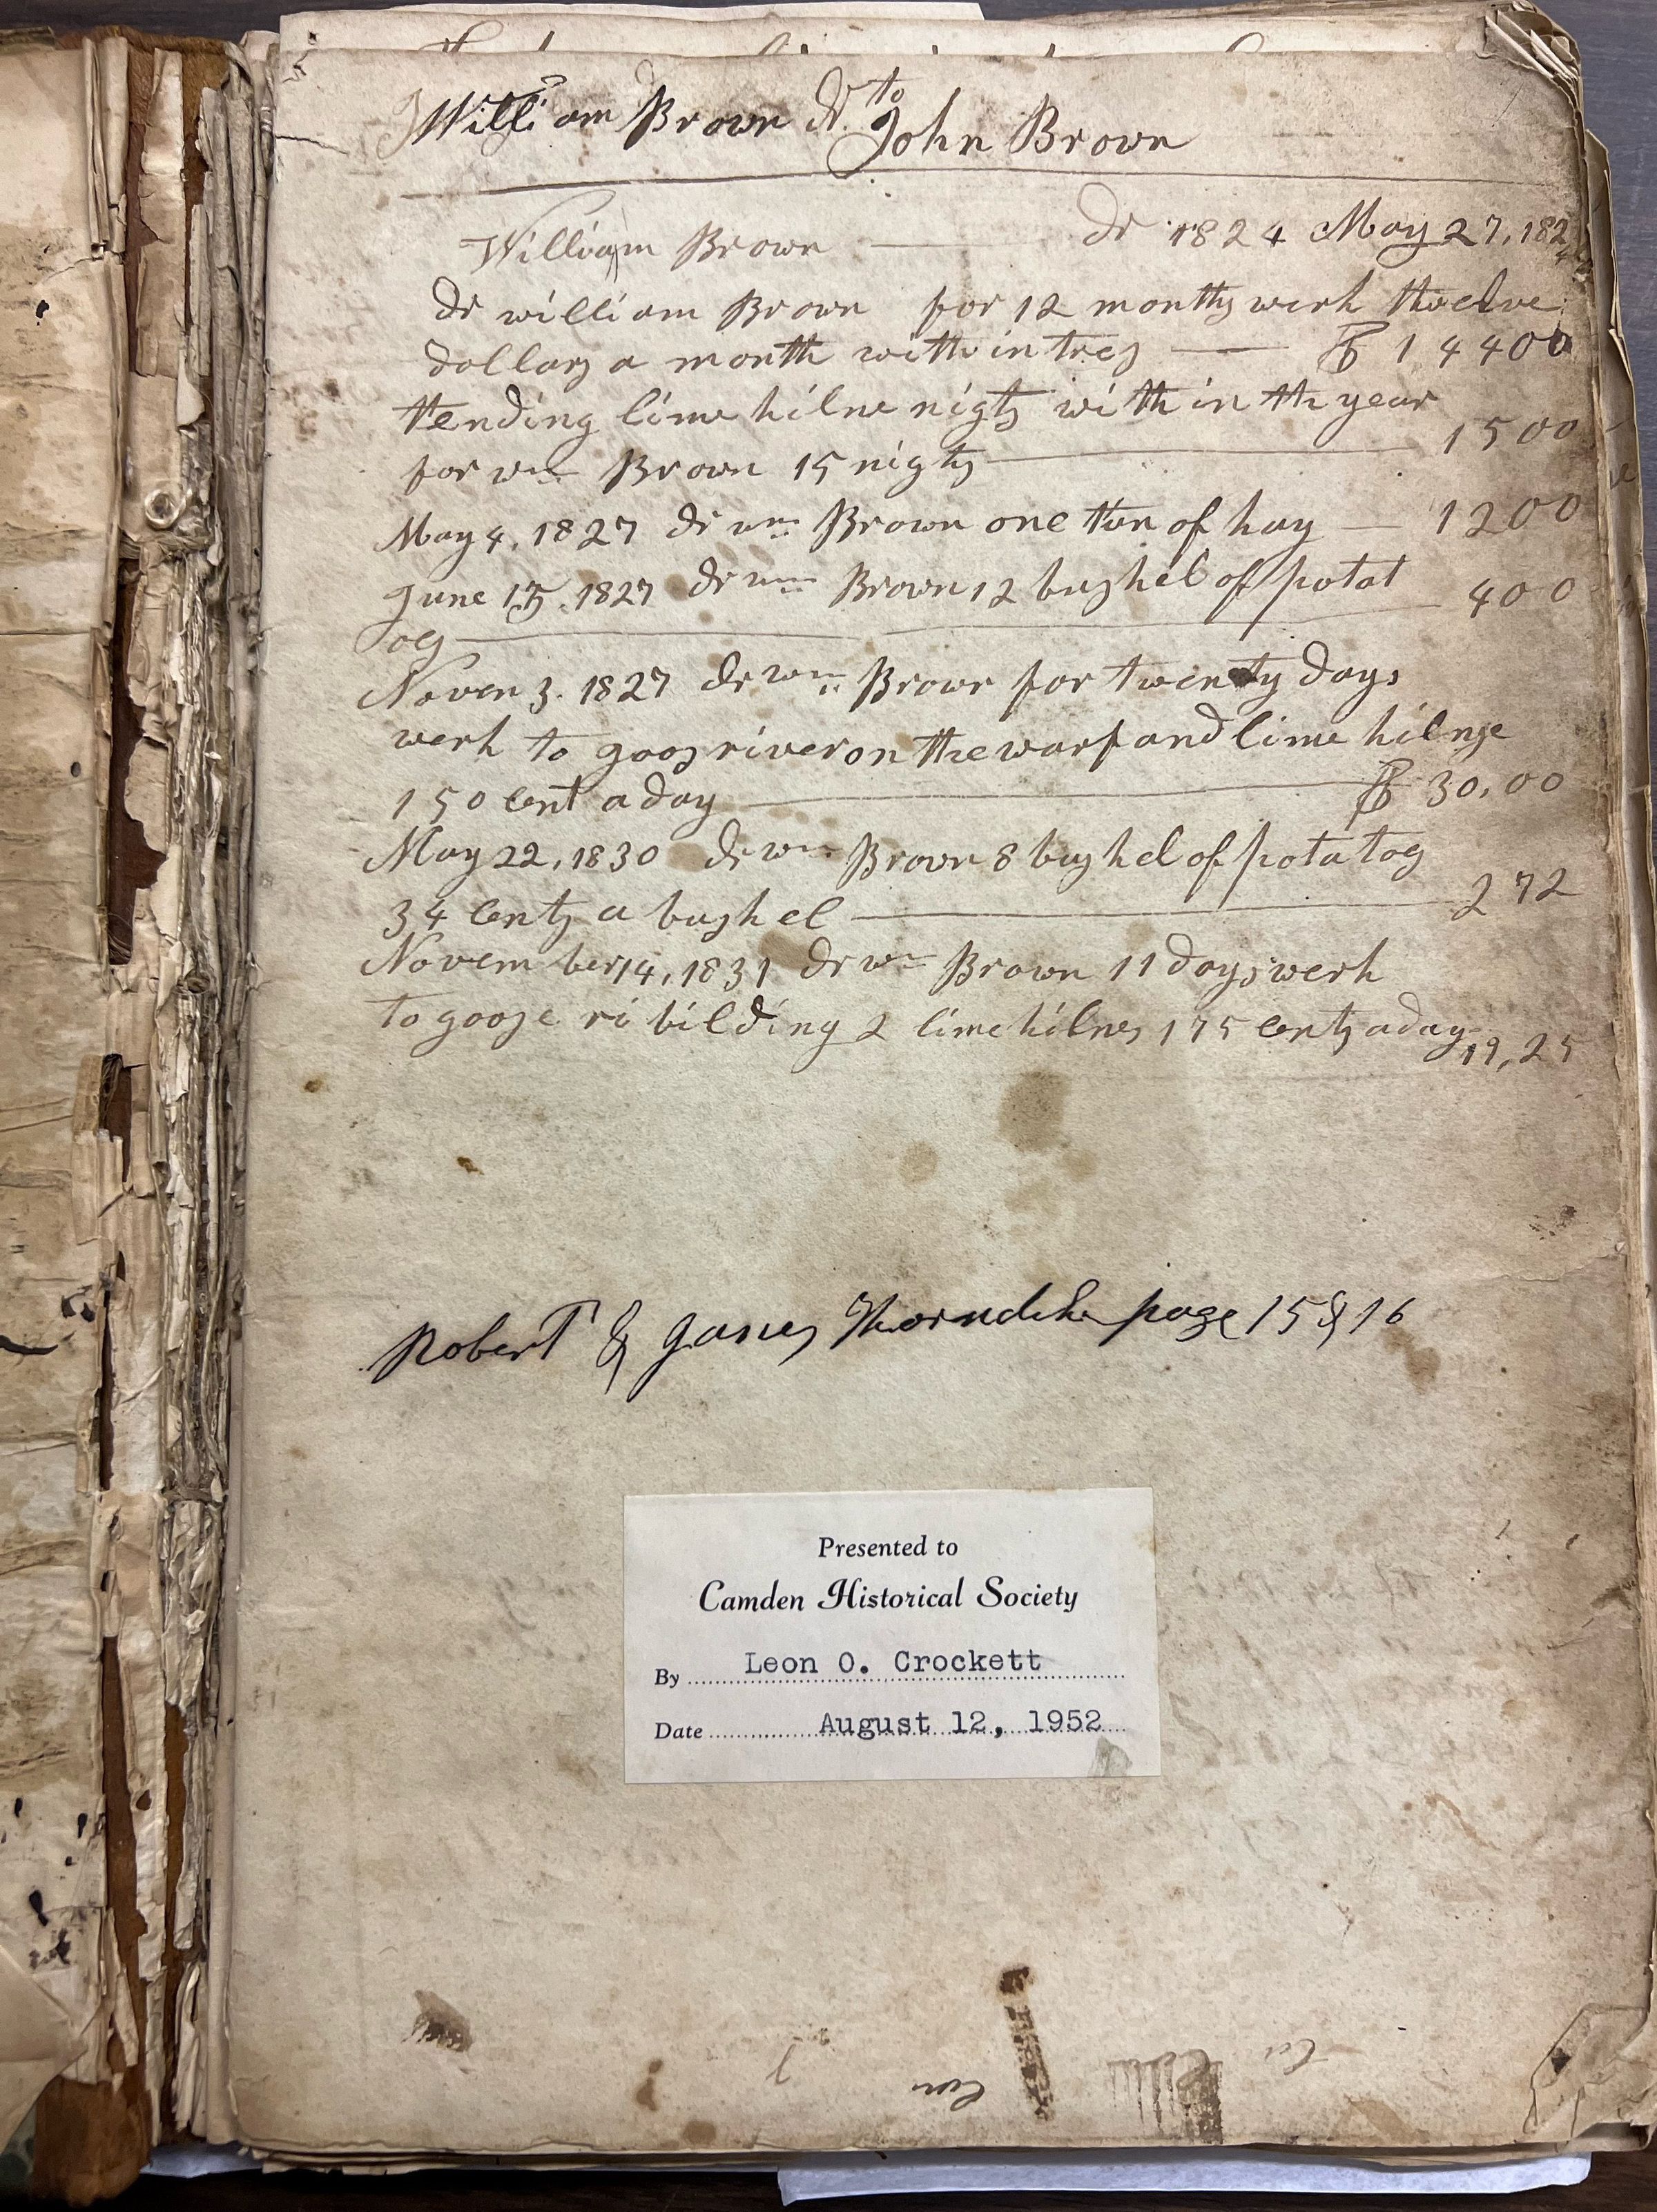 William Brown dr to
John Brown
William Brown — dr 1824 May 27, 182
dr william Brown for 12 months werk twelve
dollars a month with intres — $ 14400
tending lime kilne nigts with in th year
for wm Brown 15 nigts — 1500
May 4, 1827 dr wm Brown one tun of hay — 1200
June 15, 1827 dr wm Brown 12 bushel of potat 400
oes
Novem 3. 1827 dr wm Brown for twenty days
werk to goos river on the warf and lime kilnse
150 cent a day — $ 30,00
May 22, 1830 dr wm Brown 8 bushel of potatos
34 cents a bushel — 272
November 14, 1831 dr wm Brown 11 days werk
to goose ri bilding 2 lime kilnes 175 cents a day 19,25
Robert & James Thorndike page 15 & 16
Presented to
Camden Historical Society
By Leon O. Crockett
Date August 12, 1952